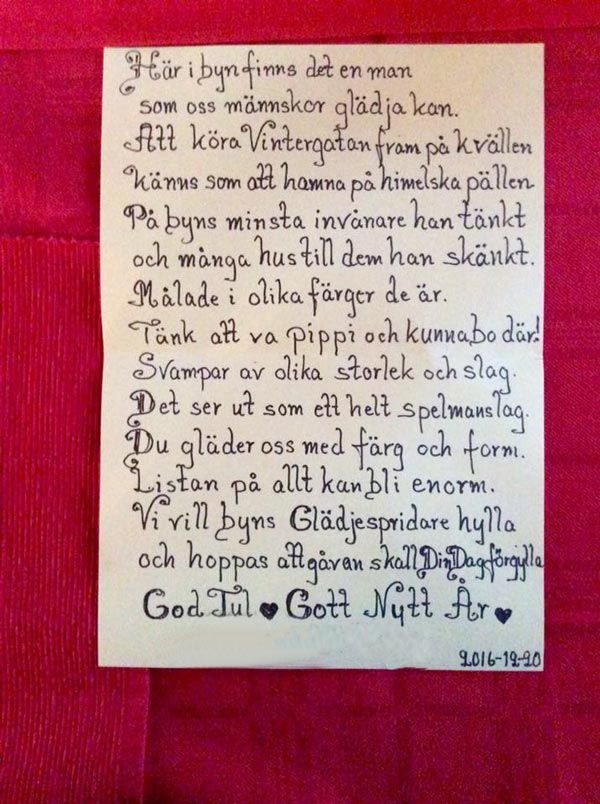 Här i byn finns det en man
som oss männskor glädja kan.
Att köra Vintergatan fram på kvällen
känns som att hamna på himelska pällen
På byns minsta invånare han tänkt
och många hus till dem han skänkt.
Målade i olika färger de är.
Tänk att va pippi och kunna bo där!
Svampar av olika storlek och slag.
Det ser ut som ett helt spelmanslag.
Du gläder oss med färg och form.
Listan på allt kan bli enorm.
Vi vill byns Glädjespridare hylla
och hoppas att gåvan skall Din Dag förgylla
God Jul ♥ Gott Nytt År ♥
2016-12-20